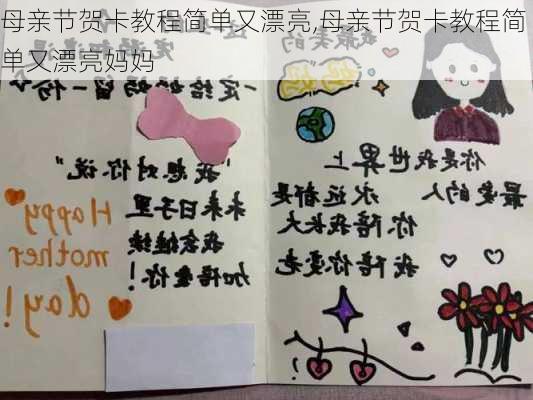 母亲节贺卡教程简单又漂亮,母亲节贺卡教程简
单又漂亮妈妈
我最美的
妈妈
你是我世界上
最爱的人 永远都是
你陪我长大
我陪你变老
一定给妈妈留一份
"我想对你说"
未来日子里
我会继续
加倍爱你！
Happy
mother
day!